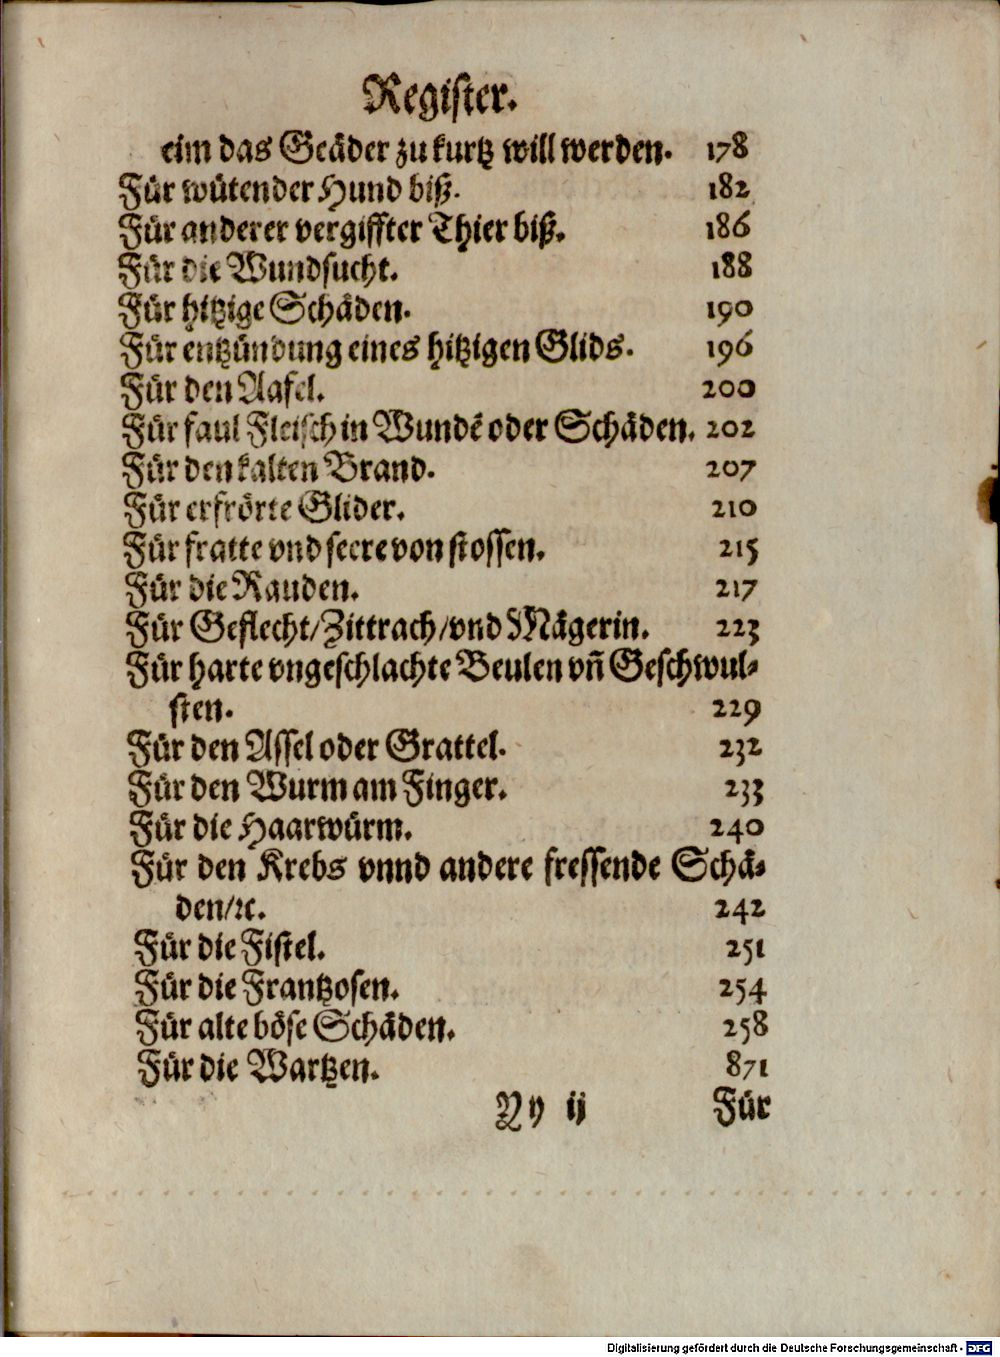 Register.
eim das Geäder zu kurtz will werden. 178
Für wütender Hund biß. 182
Für anderer vergiffter Thier biß. 186
Für die Wundsucht. 188
Für hitzige Schäden. 190
Für entzündung eines hitzigen Glids. 196
Für den Aafel. 200
Für faul Fleisch in Wundẽ oder Schäden. 202
Für den kalten Brand. 207
Für erfrörte Glider. 210
Für fratte vnd seere von stossen. 215
Für die Rauden. 217
Für Geflecht/Zittrach/vnd Mägerin. 223
Für harte vngeschlachte Beulen vñ Geschwul⸗
sten. 229
Für den Assel oder Grattel. 232
Für den Wurm am Finger. 233
Für die Haarwürm. 240
Für den Krebs vnnd andere fressende Schä⸗
den/ꝛc. 242
Für die Fistel. 251
Für die Frantzosen. 254
Für alte böse Schäden. 258
Für die Wartzen. 871
Yy ij Für
Digitalisierung gefördert durch die Deutsche Forschungsgemeinschaft - DFG